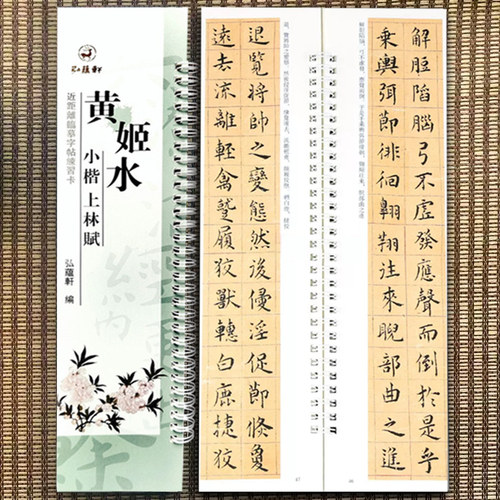 弘蘊軒
近距離臨摹字帖練習卡
黄姬水
小楷 上林賦
弘蘊軒 編
解脰陷腦弓不虛發應聲而倒於是乎
乘輿弭節徘徊翱翔往來睨部曲之進
退覽將帥之變態然後侵淫促節儵敻
遠去流離輕禽蹵履狡獸轊白鹿捷狡